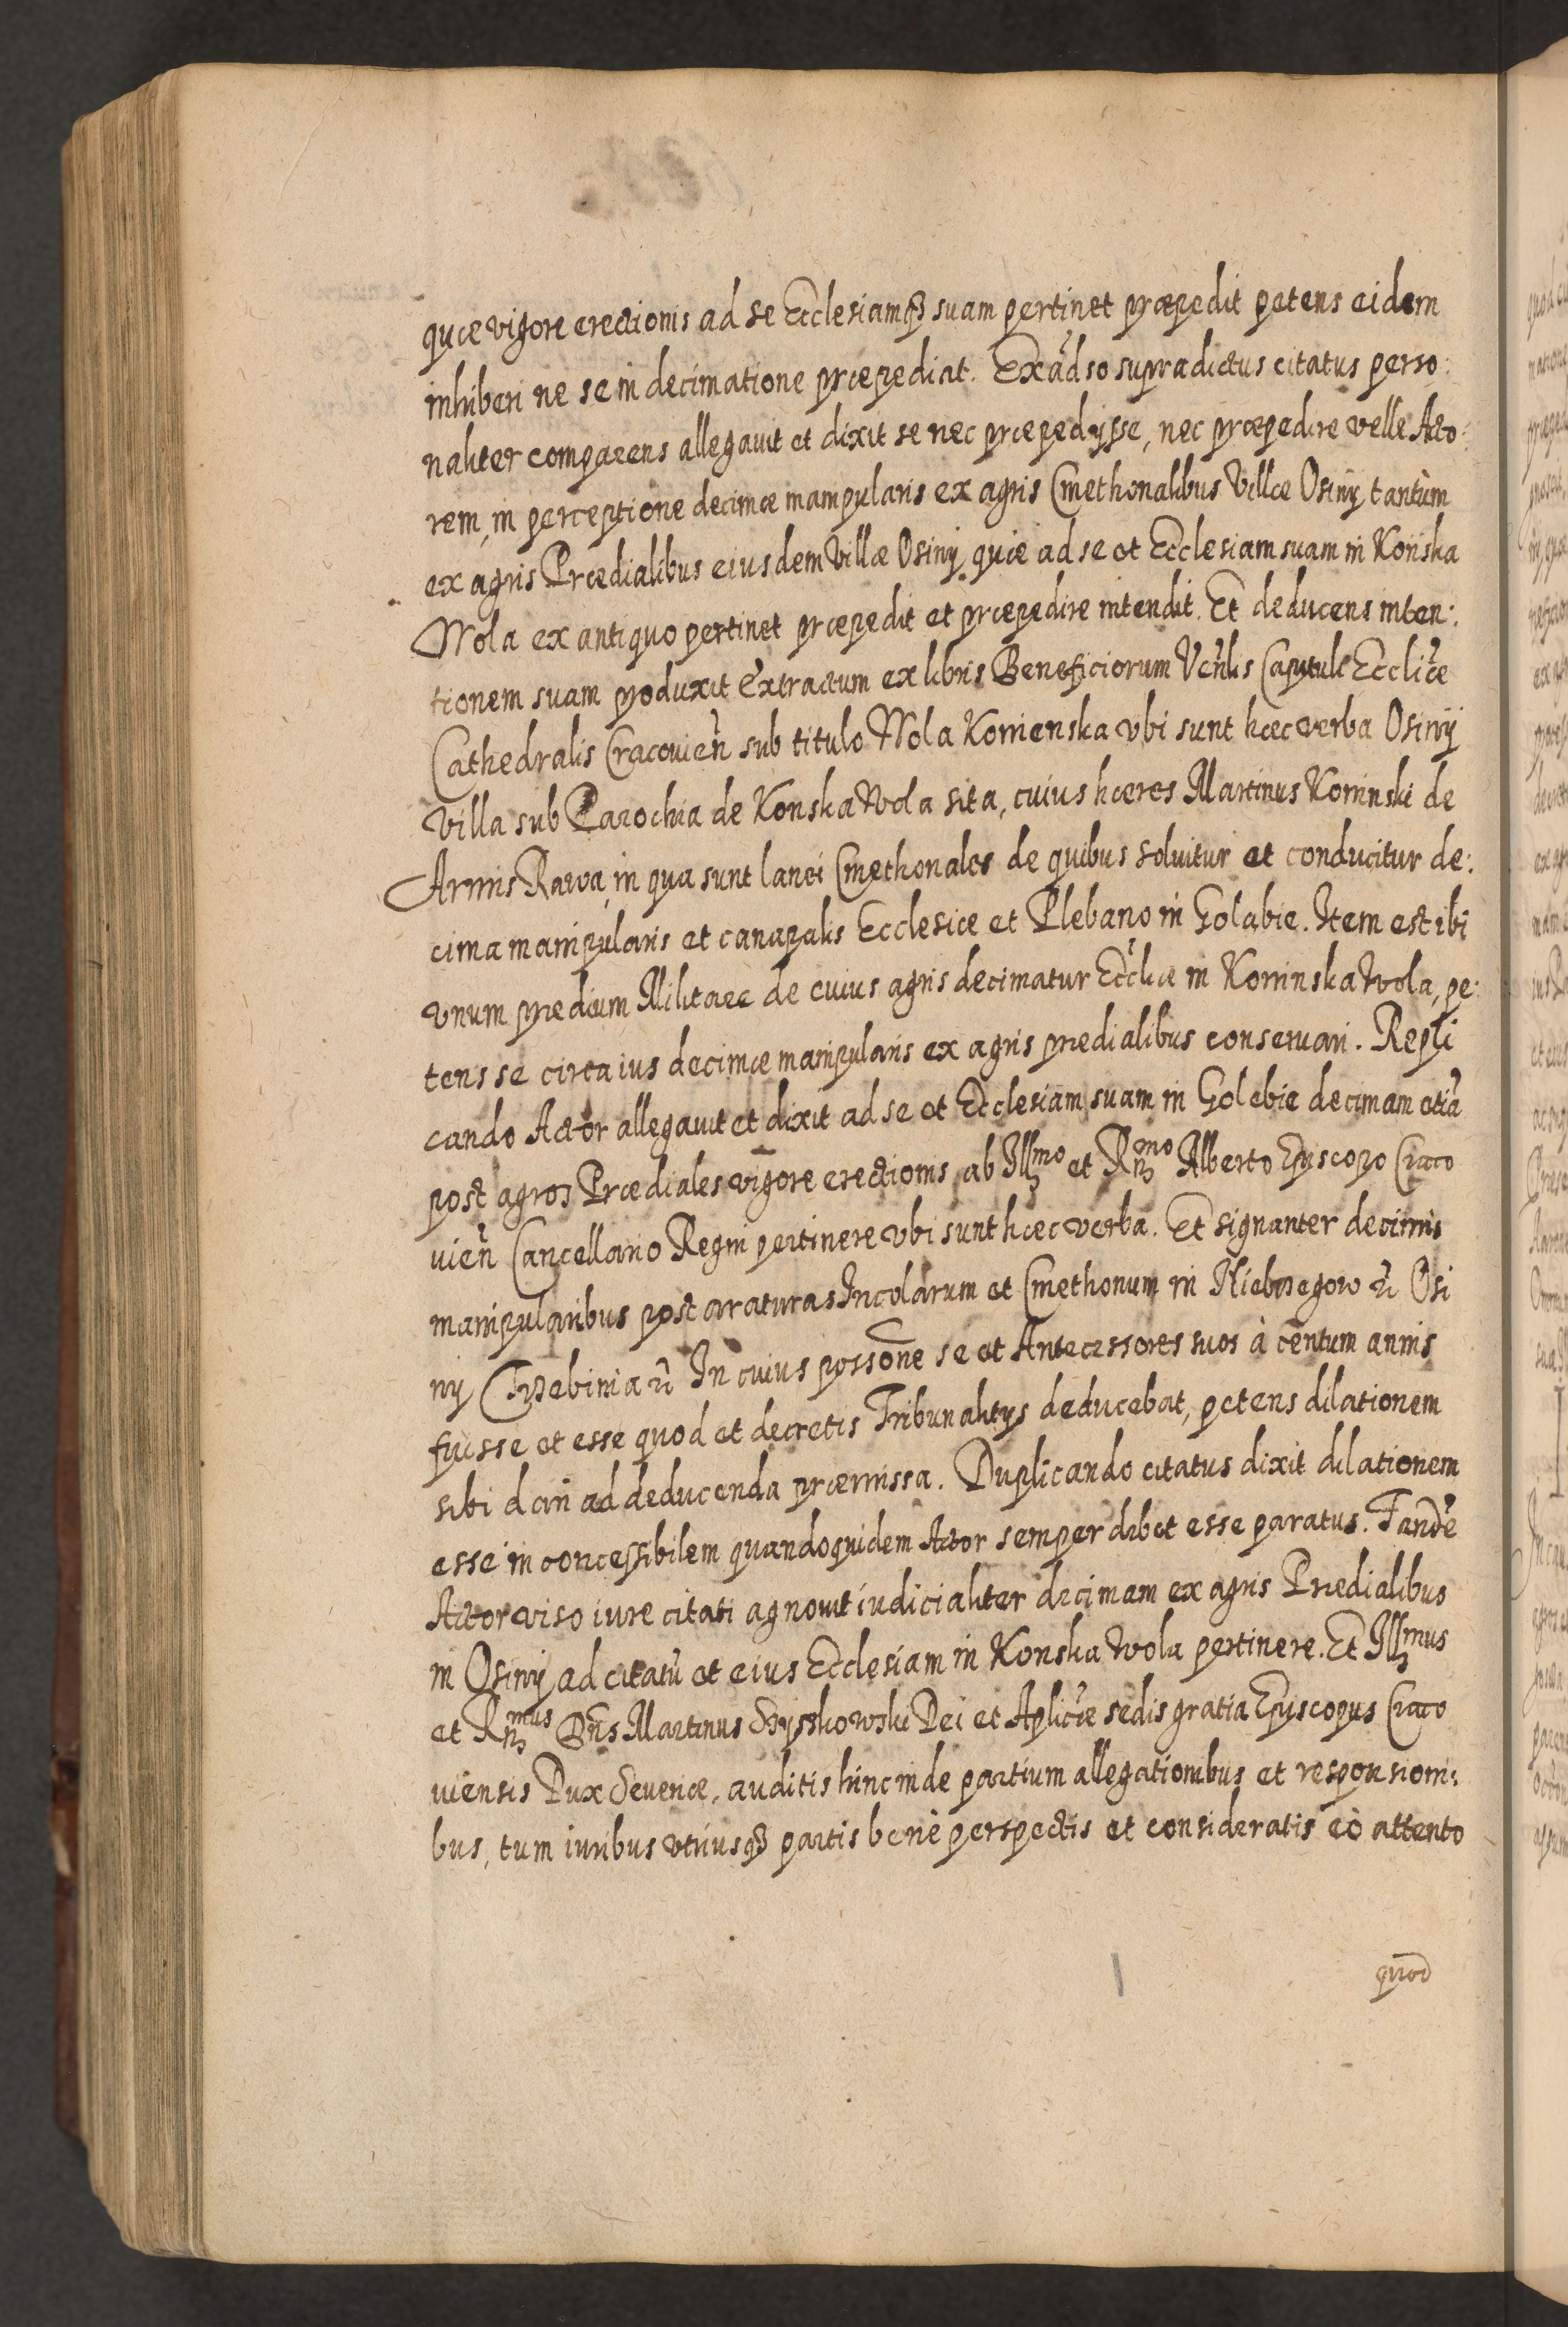 quæ vigore erectionis ad se Ecclesiamq3 suam pertinet præpedit petens eidem
inhiberi ne se in decimatione præpediat. Ex adṽso supradictus citatus perso:
naliter comparens allegauit et dixit se nec præpedijsse, nec præpedire velle Acto:
rem, in perceptione decimæ manipularis ex agris Cmethonalibus Villæ Osiny tantùm
ex agris Prædialibus eiusdem Villæ Osiny quæ ad se et Ecclesiam suam in Końska
Wola ex antiquo pertinet præpedit et præpedire intendit. Et deducens inten:
tionem suam produxit Extractum ex libris Beneficiorum Ven̄lis Capituli Eccliæ
Cathedralis Cracouien̄ sub titulo Wola Konienska vbi sunt hæc verba Osiny
Villa sub Parochia de Konska Wola sita, cuius hæres Martinus Koninski de
Armis Rawa, in qua sunt lanei Cmethonales de quibus soluitur et conducitur de:
cima manipularis et canapalis Ecclesiæ et Plebano in Gołąbie. Item est ibi
vnum prædium Militare de cuius agris decimatur Eccliæ in Koninska Wola, pe:
tens se circa ius decimæ manipularis ex agris prædialibus conseruari. Repli
cando Actor allegauit et dixit ad se et Ecclesiam suam in Golebie decimam etiā
post agros Prædiales vigore erectionis ab Illmo et Rndmo Alberto Episcopo Craco
uien̄ Cancellario Regni pertinere vbi sunt hæc verba. Et signanter decimis
manipularibus post araturas Incolarum et Cmethonum in Niebrzegow etc̄ Osi
ny Trzebinia etc̄ In cuius possōne se et Antecessores suos à centum annis
fuisse et esse quod et decretis Tribunalitijs deducebat, petens dilationem
sibi dari ad deducenda præmissa. Duplicando citatus dixit dilationem
esse inconcessibilem quandoquidem Actor semper debet esse paratus. Tandē
Actor viso iure citati agnouit iudicialiter decimam ex agris Prædialibus
in Osiny ad citatū et eius Ecclesiam in Konska Wola pertinere. Et Illmus
et Rndmus Dn̄s Martinus Szyszkowski Dei et Aplicæ sedis gratia Episcopus Craco
uiensis Dux Seueriæ, auditis hinc inde partium allegationibus et responsioni:
bus, tum iuribus vtriusq3 partis benè perspectis et consideratis eò attento
quod